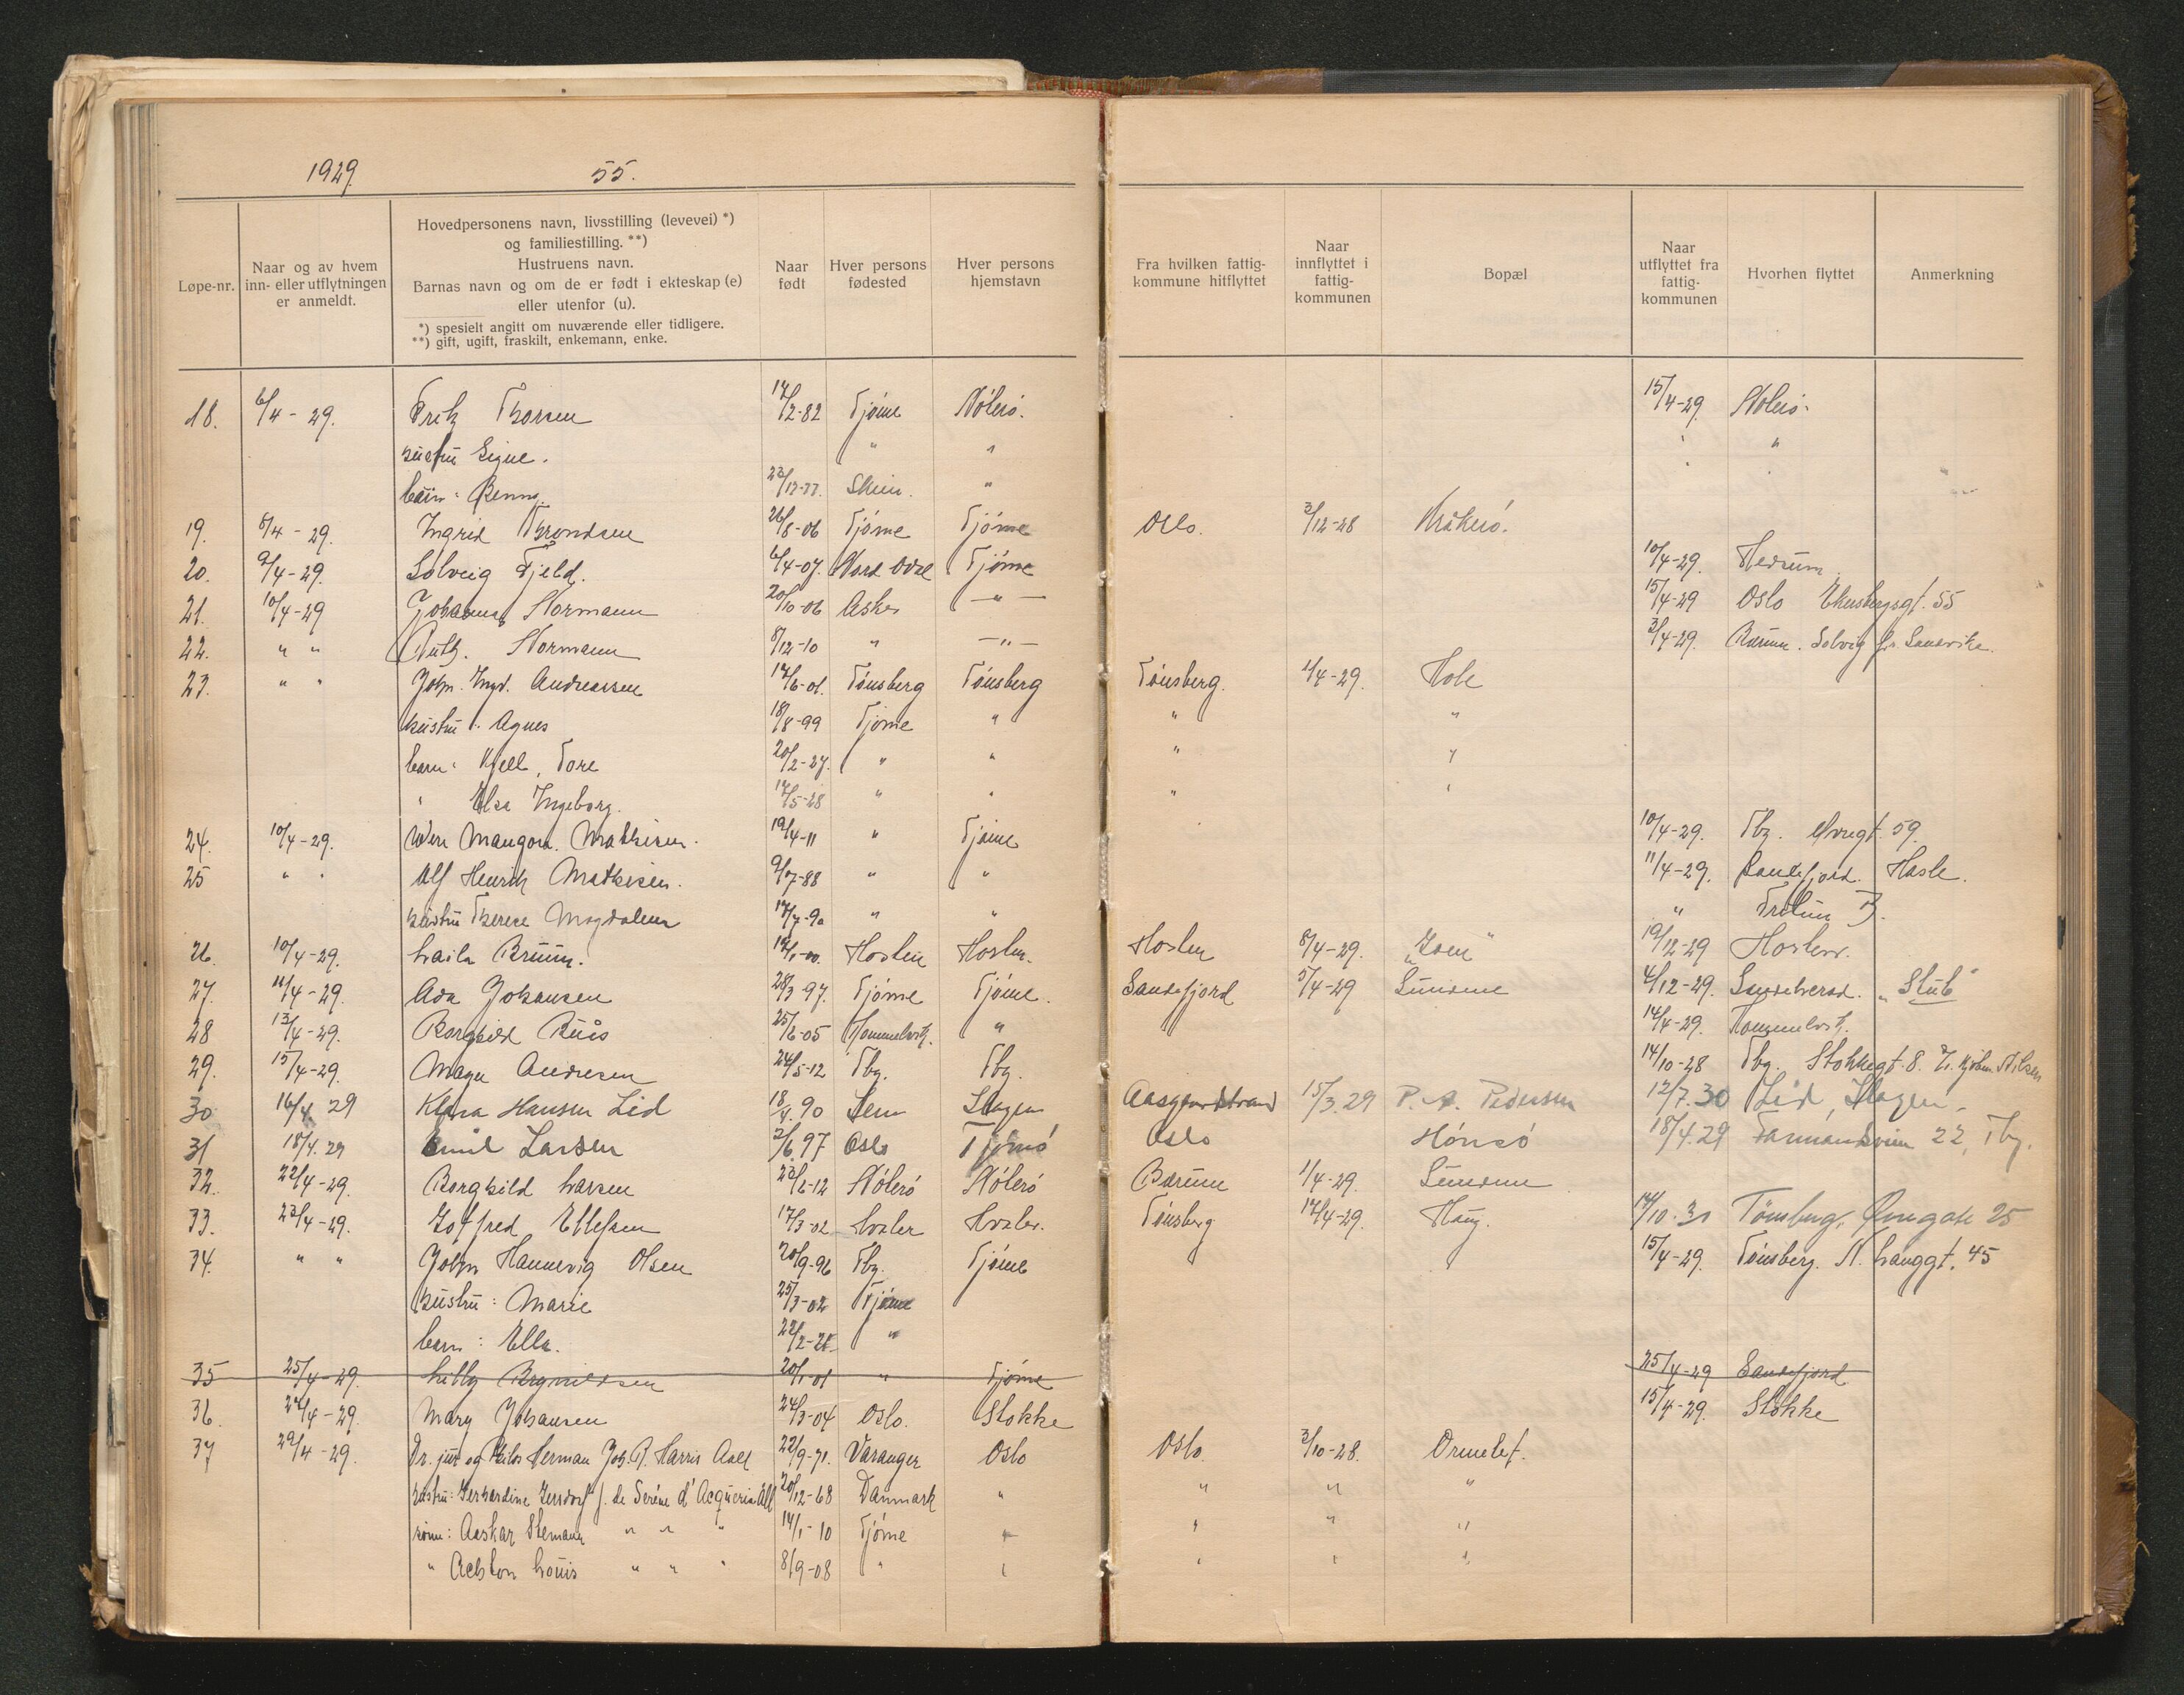 1929
55.
Løpe-nr.
Naar og av hvem
inn- eller utflytningen
er anmeldt.
Hovedpersonens navn, livsstilling (levevei) *)
og familiestilling. **)
Hustruens navn.
Barnas navn og om de er født i ekteskap (e)
eller utenfor (u).
*) spesielt angitt om nuværende eller tidligere.
**) gift, ugift, fraskilt, enkemann, enke.
Naar
født
Hver persons
fødested
Hver persons
hjemstavn
Fra hvilken fattig-
kommune hitflyttet
Naar
innflyttet i
fattig-
kommunen
Bopæl
Naar
utflyttet fra
fattig-
kommunen
Hvorhen flyttet
Anmerkning
18. 6/4-29. Fritz Thorsen 14/2-82 Tjøme Nøterø. 15/4-29. Nøterø.
hustru Signe. " " " "
barn: Benny. Skien. "
19. 8/4-29. Ingrid Throndsen 26/8-06 Tjøme Tjøme Oslo. 3/12-28 Kråkerø.
20. 9/4-29. Solveig Fjeld. 6/4-07. Nord Odal Tjøme 10/4-29. Hedrum.
21. 10/4-29 Johanne Normann 20/10-06 Asker -"- 15/4-29 Oslo Ekebergsgt. 55
22. " " Ruth. Normann 8/12-10 " -"- 3/4-29. Bærum. Solveig pr. Sandvika.
23. " " John. Ingv. Andreassen 14/6-01. Tønsberg Tønsberg Tønsberg. 1/4-29. Hole
hustru: Agnes 18/8-99 Tjøme " " "
barn: Kjell, Tore 20/2-27. " " " "
" Else Ingeborg. 14/5-28 " " " "
24. 10/4-29. Mathisen. 19/4-11 " Tjøme 10/4-29. Tbg. Øvregt. 59.
25 " " Alf Henrik Mathisen. 9/7-88 " " 11/4-29. Sandefjord. Hasle.
hustru Therese Magdalena 17/7-90 " " "
26. 10/4-29. Laila Bruun. Horten Horten. Horten 8/4-29. 19/12-29 Horten.
27. 11/4-29. Ada Johansen 28/3-97. Tjøme Tjøme. Sandefjord 5/4-29 Sundene 4/12-29. Sandeherad. "Stub"
28 13/4-29. Borghild Buås 25/6-05 Hommelvik. " 14/4-29. Hommelvik.
29. 15/4-29. Andresen 24/5-12 Tbg. Tbg. 14/10-28 Tbg. Stokkegt. 8.
30 16/4 29 Klara Hansen Lid 18/4.90 Sem Slagen Aasgaardstrand 15/3.29 P. A. Pedersen 12/7.30 Lid, Slagen.
31 18/4.29 Emil Larsen 2/6.97 Oslo Tjømø Oslo Hønsø 18/4.29 Farmandsveien 22, Tbg.
32. 22/4-29. Borghild Larsen 23/6-12 Nøterø Nøterø Bærum 1/4-29. Sundene
33. 23/4-29. Gotfred Ellefsen 17/3-02 Hvaler Hvaler. Tønsberg 17/4-29. Haug. 14/10.30 Tønsberg, Øvregate 25
34. " " John Hannevig Olsen 20/9-96 Tbg. Tjøme 15/4-29. Tønsberg. N. Langgt. 45
hustru: Marie 25/3-02 Tjøme
barn: Ella. "
35 25/4-29. Lilly Brynildsen 20/1-01 " Tjøme 25/4-29 Sandefjord
36. 27/4-29. Mary Johansen 24/3-04 Oslo. Stokke 15/4-29. Stokke
37 29/4-29. Dr. jur og Philos Herman Joh. Harris Aall 22/9-71. Varanger Oslo Oslo. 3/10-28. Ormelet.
hustru: f. de Seréne d'Acqueria Aall 20/12-68 Danmark " " " "
sønn: Stemann " " " 14/1-10 Tjøme " " " "
" Louis " " " 8/9-08 " " " " "